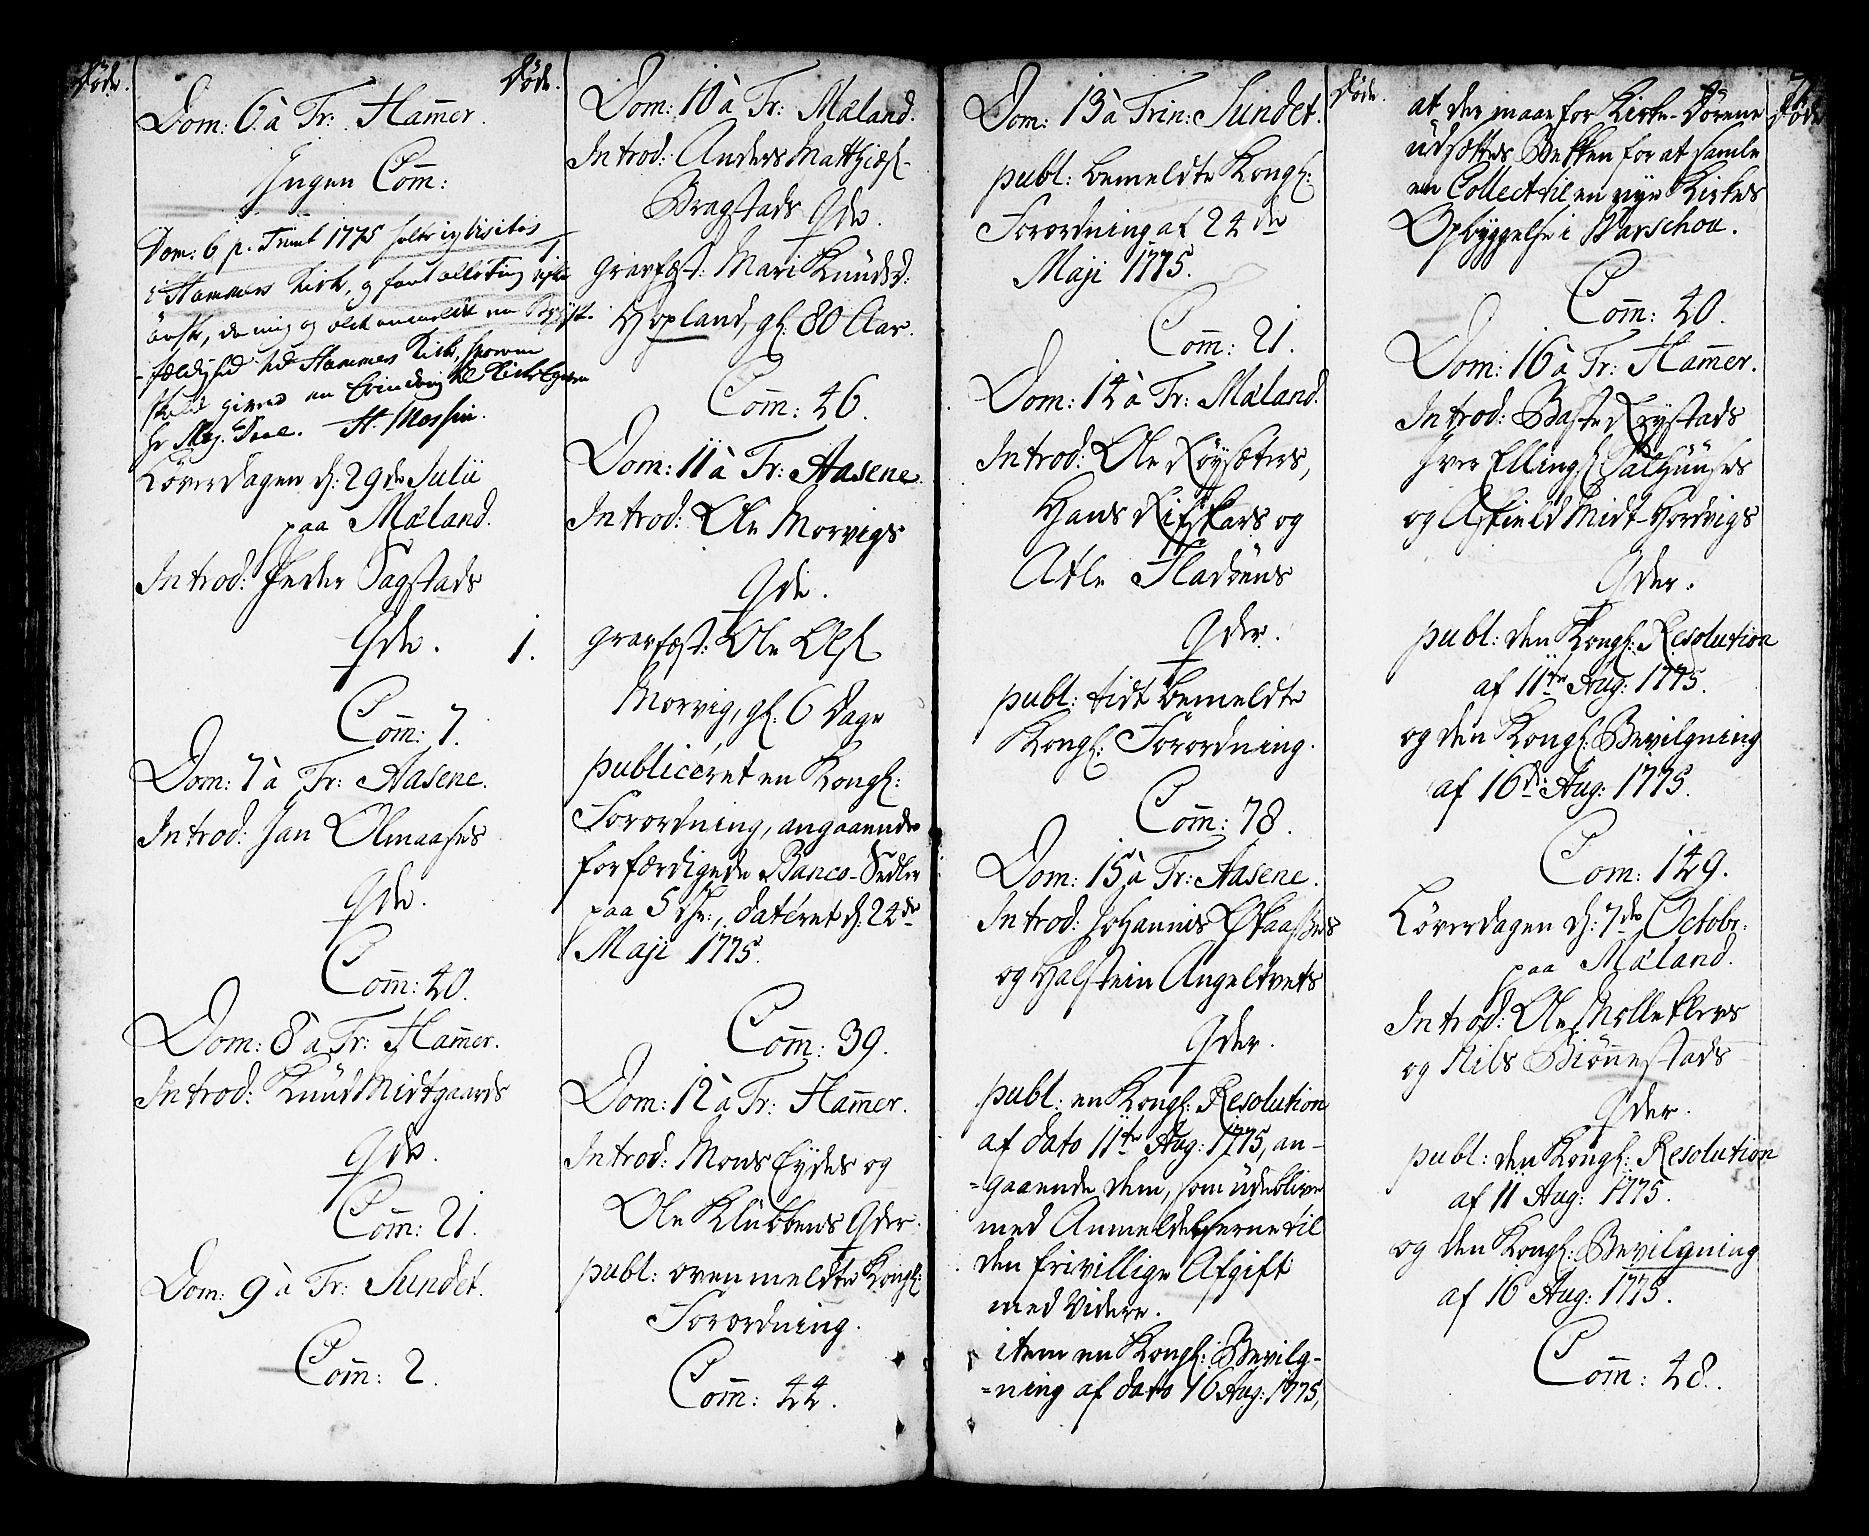 Døde.
Dom: 6 à Tr: Ham̄er.
Ingen Com̄:
Dom: 6 p. Trinit 1775 holte jeg Visitas
i Hammers Kirk, og fant alleting
Hammers Kirk,
skuld gives en Erindring til Kirke Eyeren
Hr Maj. H. Mossin.
Løverdagen d: 29de Julii
paa Mæland.
Introd: Peder Sagstads
Qde. 1.
Com̄: 7.
Dom: 7 à Tr: Aasene.
Introd: Jan Olmaases
Qde.
Com̄: 40.
Dom: 8 à Tr: Ham̄er.
Introd: Knud Midtgaards
Qde.
Com̄: 21.
Dom: 9 à Tr: Sundet.
Com̄: 2.
Døde.
Dom: 10 à Tr: Mæland.
Introd: Anders Matthiæs-
Bragstads Qde.
Gravfæst: Mari Knudsd:
Hopland, gl: 80 Aar.
Com̄: 46.
Dom: 11 à Tr: Aasene.
Introd: Ole Morvigs
Qde.
Gravfæst: Ole Ols
Morvig, gl: 6 Dage
publiceret en Kongl:
Forordning, angaaende
forfærdigede Banco-Sedler
paa 5 Dr:, dateret d: 24de
Maji 1775.
Com̄: 39.
Dom: 12 à Tr: Ham̄er.
Introd: Mons Eydes og
Ole Klubbens Qder.
publ: ovenmeldte Kongl:
Forordning.
Com̄: 44.
Dom: 13 à Trin: Sundet.
publ: bemeldte Kongl:
Forordning af 24de
Maji 1775.
Com̄: 21.
Dom: 14 à Tr: Mæland.
Introd: Ole Røysæters,
Hans Ripskars og
Atle Fladøens
Qder.
publ: tidt bemeldte
Kongl: Forordning.
Com̄: 78.
Dom: 15 à Tr: Aasene.
Introd: Johannes
og Halstein Angeltvets
Qder.
publ: en Kongl: Resolution
af dato 11te Aug: 1775, an-
-gaaende dem, som udeblive
med Anmeldelserne til
den frivillige Afgift
med Videre.
item en Kongl: Bevilg-
-ning af dato 16 Aug: 1775,
Døde.
at der maae for Kirke-Dørene
udsættes Bekken for at samle
en Collect til en nye Kirkes
Opbyggelse i Varschou.
Com̄: 40.
Dom: 16 à Tr: Ham̄er.
Introd: Baste Røystads
Iver Ellings Salhuuses
og Asfield Midt-Hordvigs
Qder.
publ: den Kongl: Resolution
af 11te Aug: 1775.
og den Kongl: Bevilgning
af 16de Aug: 1775.
Com: 149.
Løverdagen d: 7de Octobr:
paa Mæland.
Introd: Ole Mollekleivs
og Nils Biønnestads
Qder.
publ: den Kongl: Resolution
af 11 Aug: 1775.
og den Kongl: Bevilgning
af 16 Aug: 1775.
Com̄: 48.
Døde